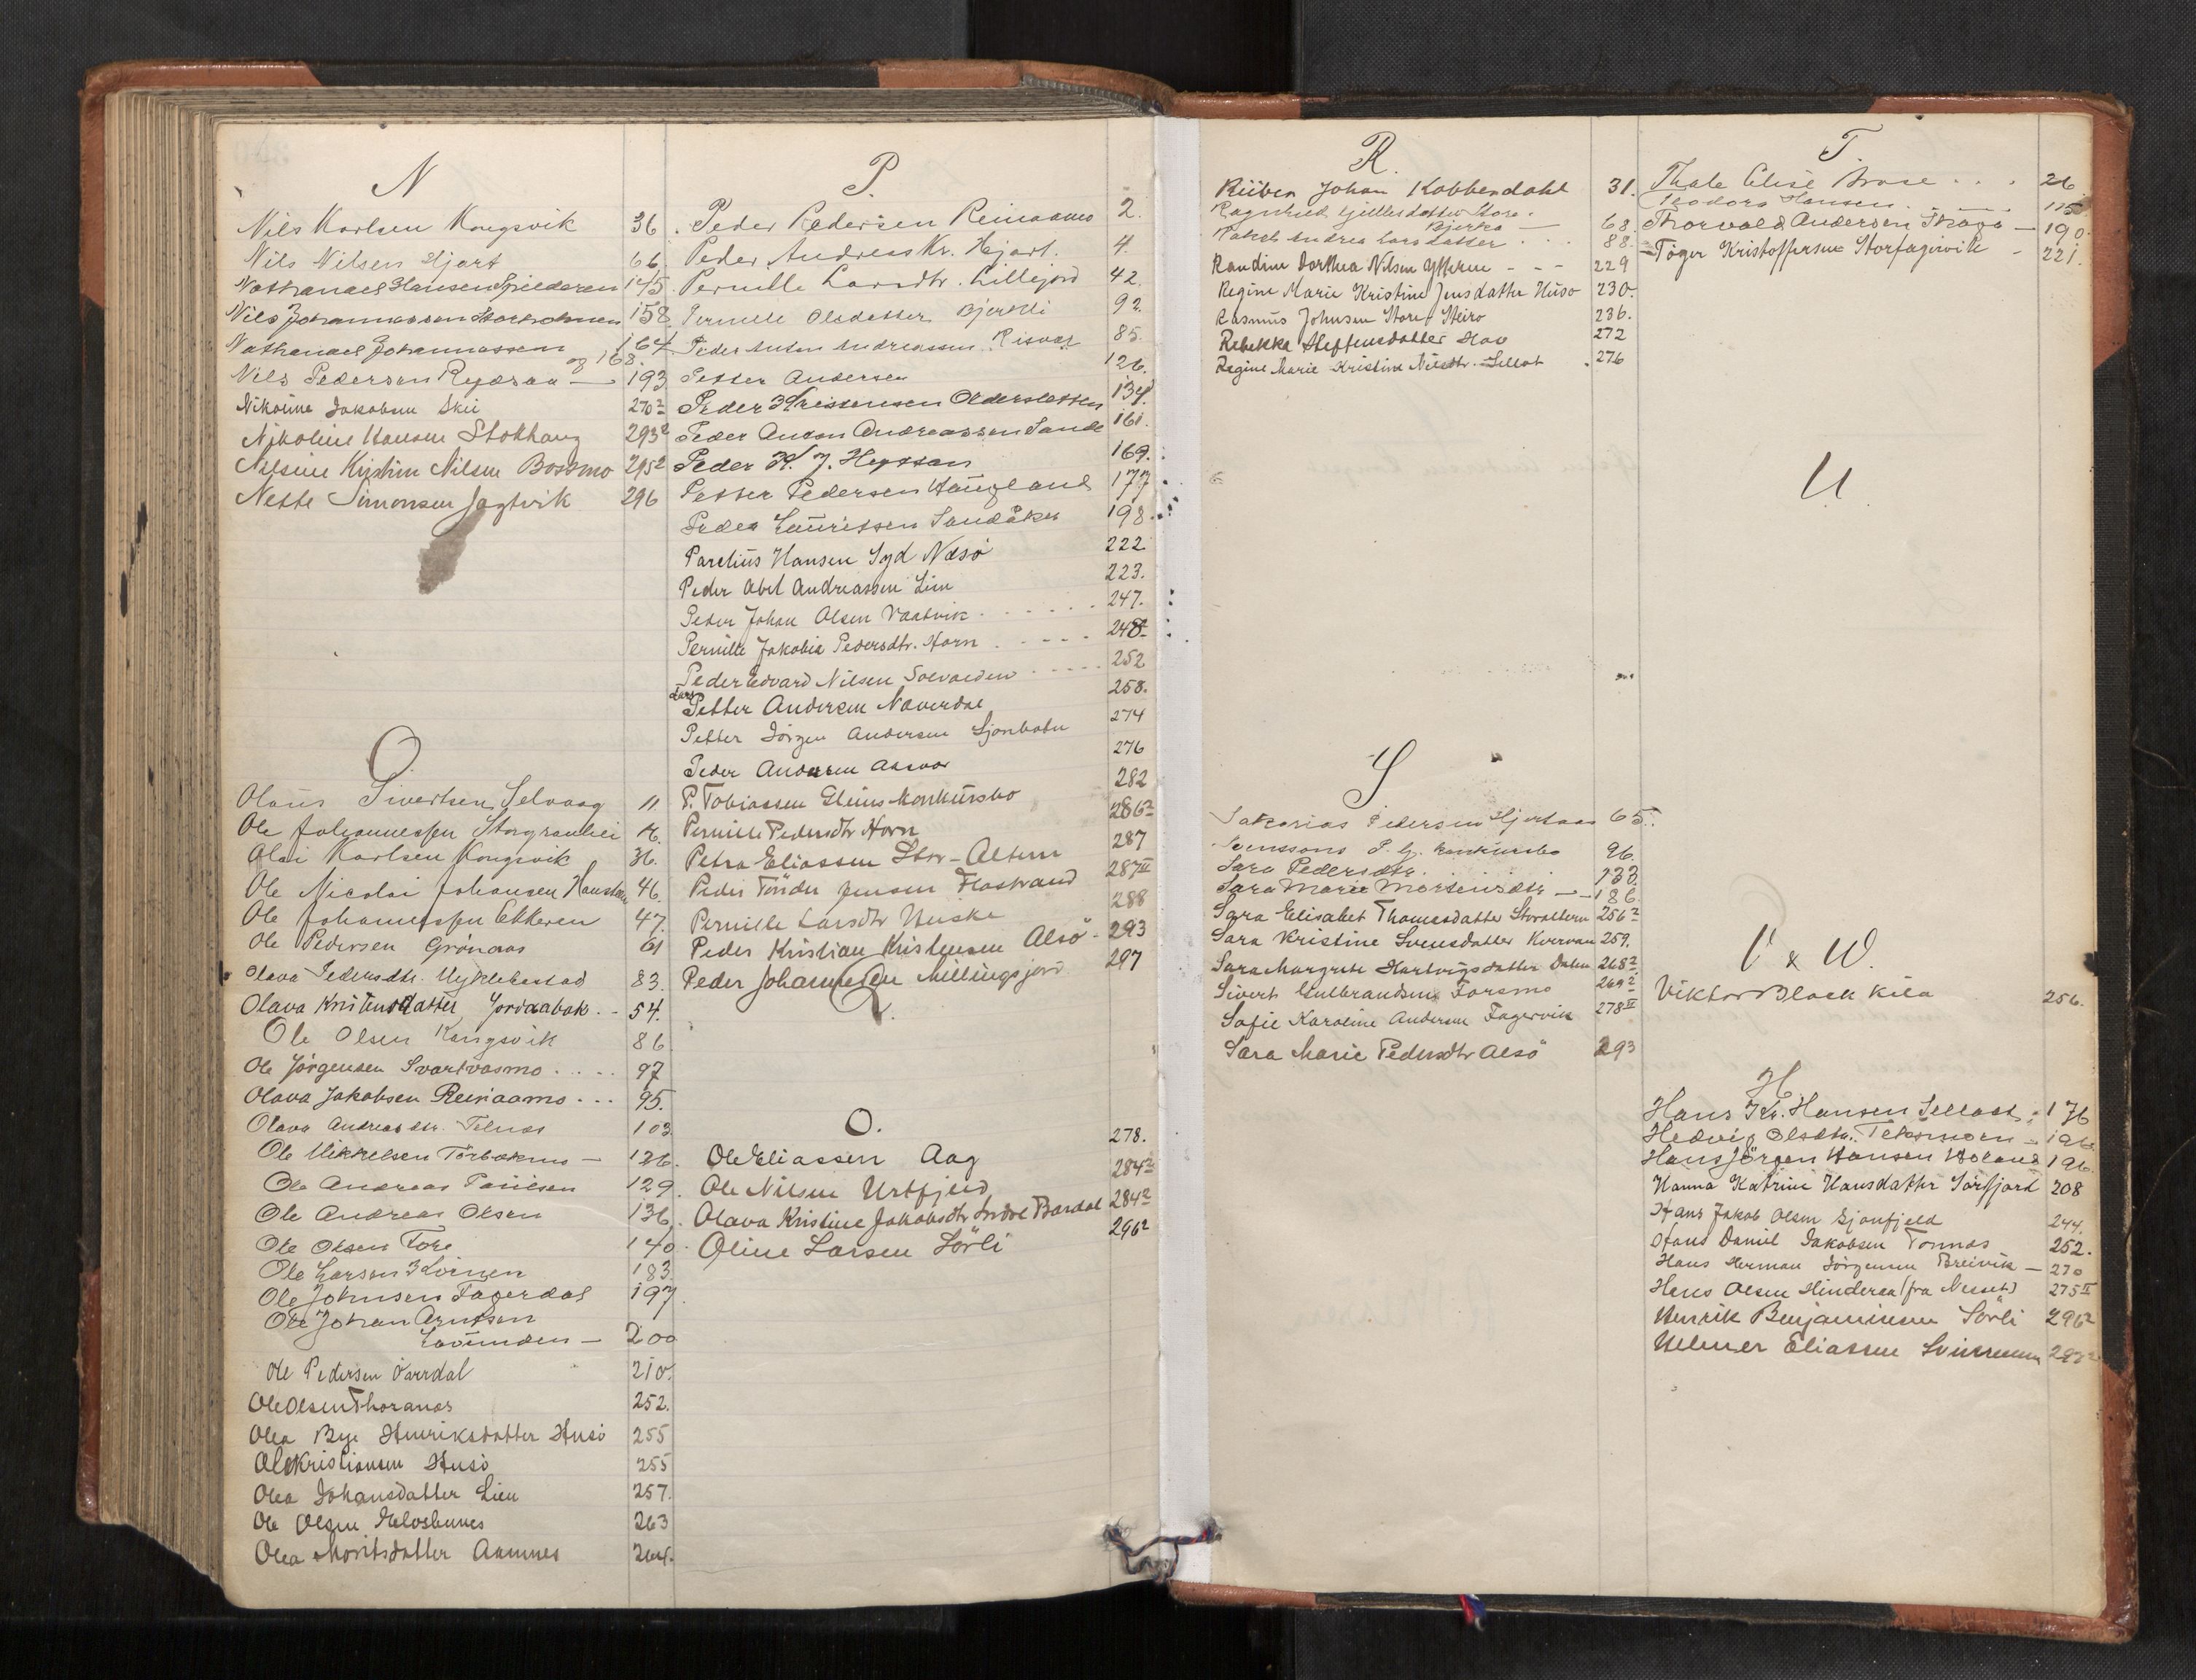 N
Nils Karlsen Kongsvik 36
Nils Nilsen Hjart 66
Nathanael Hansen 145
Nils Johannessen Storholmen 158
Nathanael Johannessen 164
og 168
Nils Pedersen Rydsaa — 193
Nikoline Jakobsen Skei 270²
Nikoline Hansen Stokhaug 293²
Nilsine Kristine Nilsen Bossmo 295²
Nette Simonsen Jagtvik 296
O
Olaus Sivertsen Selvaag 11
Ole Johannessen 16.
Olai Karlsen Kongsvik 36.
Ole Nicolai Johansen 46.
Ole Johannessen Ekkeren 47.
Ole Pedersen Grönaas 61
Olava Pedersdtr. 83.
Olava Kristensdatter Jordaabak . - 54.
Ole Olsen Kongsvik 86
Ole Jörgensen Svartvasmo . . . . 97
Olava Jakobsen Reinaamo . . . 95.
Olava Andreasdtr. Filnes 103
Ole Mikkelsen — 126.
Ole Andreas Paulsen 129.
Ole Andreas Olsen 136.
Ole Olsen Fore 140.
Ole Larsen 183.
Ole Johnsen Fagerdal 197
Ole Johan Arntsen
Lovunden — 200
Ole Pedersen 210.
Ole Olsen Thoranes 252.
Olea Bye Henriksdatter Husö 255
Ole Kristiansen Husö 255
Olea Johansdatter Lien 257.
Ole Olsen 263
Olea Moritsdatter Aamnes 264.
P.
Peder Pedersen Reinaamo 2.
Peder Andreas Kr. Hjart. 4.
Pernille Larsdtr. Lillejord 42.
Pernille Olsdatter Bjerkli 92.
Peder Anton Andreassen Risvar 85.
Petter Andersen 126.
Peder Kristensen Oldersletten 134.
Peder Anton Andreassen Sande 161.
Peder K. J. 169.
Petter Pedersen Haugland 177
Peder Lauritsen Sandåker 198
Parelius Hansen Syd Næsö 222
Peder Abel Andreassen Lien 223.
Peder Johan Olsen Vaatvik . . . . . . 247.
Pernille Jakobia Pedersdtr. Horn . . . . 248²
Peder Edvard Nilsen Solvarden . . . . . 252
Lars
Petter Andersen Naverdal 258.
Petter Jörgen Andersen Sjonbotn 274
Peder Andersen Aasvær 276
P. Tobiassen Glein konkursbo 282
Pernille Pedersdtr Horn 286²
Petra Eliassen Stor-Altern 287
Peder Tönder Jensen Flostrand 287II
Pernille Larsdtr 288
Peder Kristian Kristensen Alsö - 293
Peder Johannesen Mellingsjord 297
Q.
O.
Ole Eliassen Aag 278.
Ole Nilsen Urtfjeld 284²
Olava Kristine Jakobsdtr Indre Bardal 284²
Oline Larsen Sörli 296²
R.
Rüben Johan Kobbendahl 31.
Ragnhild Store
Bjerka — 68.
Rakel Andrea Larsdatter . . . 88.
Randine Dorthea Nilsen Ytteren - - - 229
Regine Marie Kristine Jensdatter Husö 230.
Rasmus Johnsen Store Steiro 236.
Rebekka Steffensdatter Hov 272
Regine Marie Kristine Nilsdtr. Selfot . 276
S
Sakarias Pedersen 65.
Svenssons P. G. konkursbo 96.
Sara Pedersdtr. 133.
Sara Marie Mortensdtr — 186.
Sara Elisabet Thomasdatter Storaltern 256²
Sara Kristine Svensdatter Kvervan 259.
Sara Margrete Hartvigsdatter Dalen 268²
Sivert Gulbrandsen Forsmo 269²
Sofie Karoline Andersen Fagervik 278II
Sara Marie Pedersdtr Alsö 293
T
Thale Elise . . . 26
Teodora Hansen . — 175
Thorvald Andersen Skaga — 190.
Töger Kristoffersen Storfagervik - 221.
U.
V & W.
Viktor Block Kila 256.
H
Hans Kr. Hansen 176
Hedvig Olsdtr. — 196
Hans Jörgen Hansen 196
Hanna Katrine Hansdatter Sörfjord 208
Hans Jakob Olsen Sjonfjeld 244.
Hans Daniel Jakobsen Tonnes 252.
Hans Herman Jörgensen Breivik — 270
Hans Olsen Hinderaa (fra Nesset) 275II
Henrik Benjaminsen Sörli 296²
Helmer Eliassen